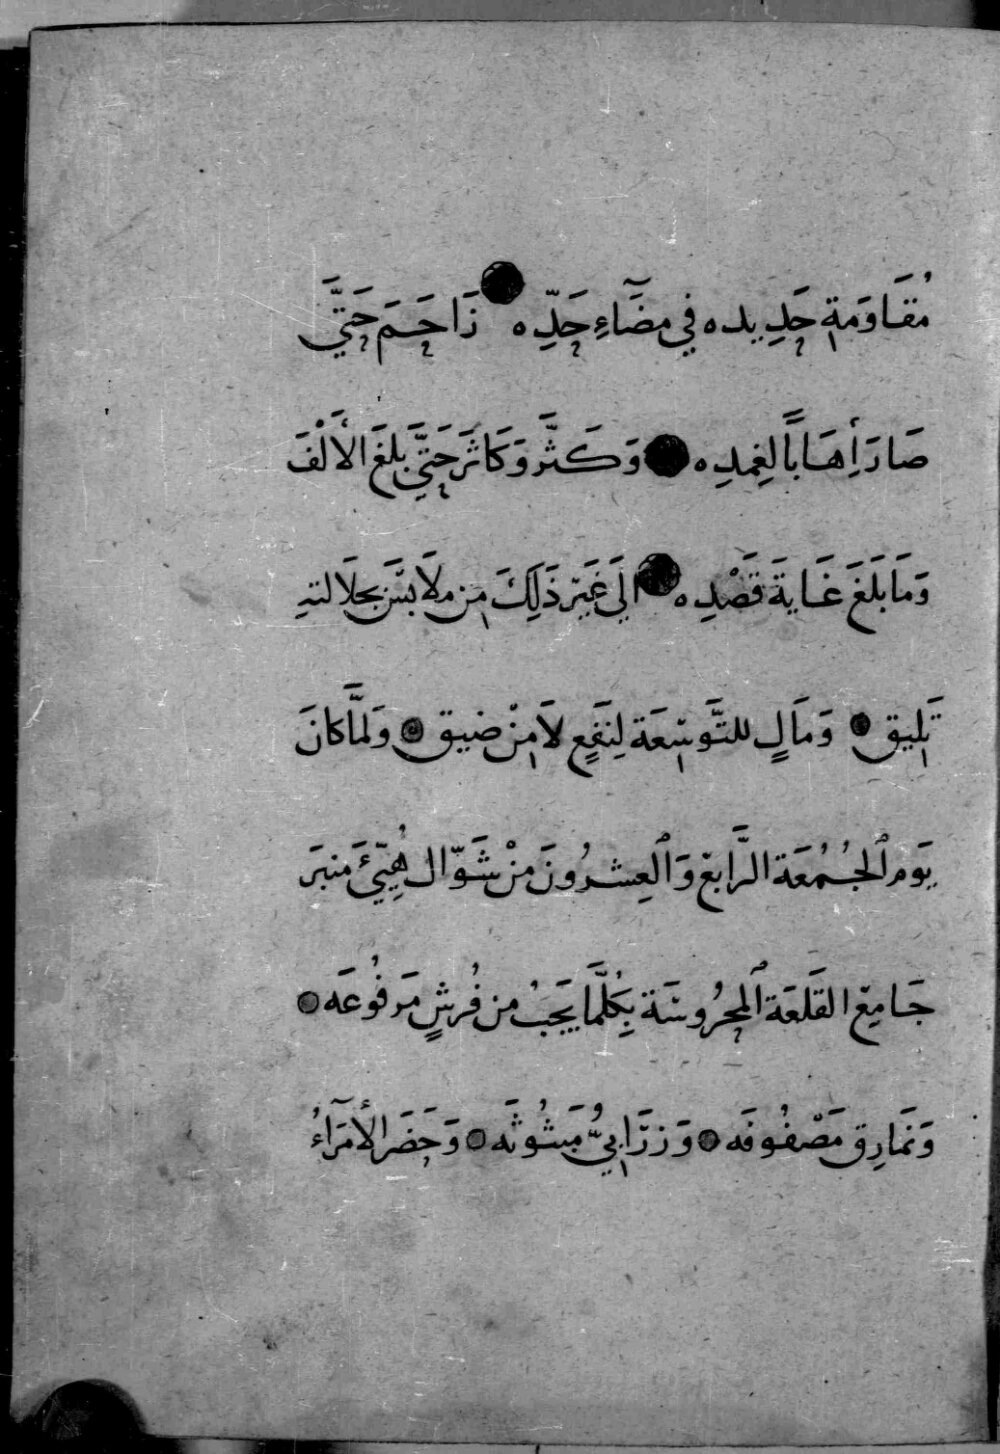 مُقَاوَمَةِ حَدِيدِه في مضَآءِ حَدِّه ● زَاحَمَ حَتَّي
صَارَ أِهَابًا لغِمدِه ● وَكَثَّرَ وَكَاثَرَ حَتَّي بلَغَ الأَلْفَ
وَمَا بَلَغَ غَايَةَ قَصْدِه ● الَي غَيْر ذَلِكَ مِن ملَابسَ بجلَالتهِ
تَلِيق ● وَمَالٍ للتَّوسِعَة لِنَفْعٍ لَا مِنْ ضيق ● وَلمَّا كانَ
يَوم ٱلجُمُعَة الرَّابِع وَٱلعِشرُونَ منْ شَوَّال هُيِّئَ منبَرَ
جَامِع القَلعَة ٱلمحرُوسَة بِكُلَّمَا يَجَبُ من فُرشٍ مَرفُوعَه ●
وَنَمَارِق مَصْفُوفَه ● وَزرَابِيُّ مَبثُوثَه ● وَحَضَر الأُمَرَآءُ